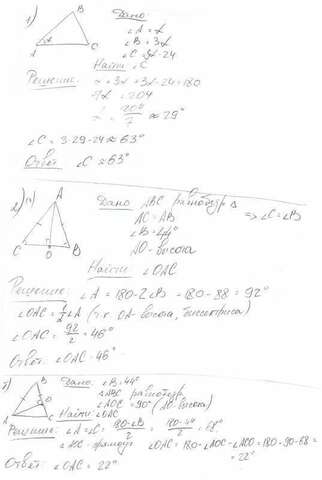 1)
B
A α C
Дано
∠A = α
∠B = 3α
∠C = 3α-24
Найти: ∠C
Решение:
α + 3α + 3α - 24 = 180
7α = 204
∠C = 3·29-24 ≈ 63°
Ответ ∠C ≈ 63°
2) а)
A
C O B
Дано ABC равнобедр Δ
AC = AB => ∠C = ∠B
∠B = 44°
AO - высота
Найти: ∠OAC
Решение: ∠A = 180 - 2∠B = 180 - 88 = 92°
∠OAC = 1/2 ∠A (т.к. OA - высота, биссектриса)
∠OAC = 92/2 = 46°
Ответ: ∠OAC - 46°
B
A C
Дано: ∠B = 44°
ΔABC равнобедр
∠AOC = 90° (AO - высота)
Найти: ∠OAC
Решение: ∠A = ∠C = 180-∠B/2 = 180-44°/2 = 68°
∠OAC = 180 - ∠AOC - ∠ACO = 180 - 90 - 68 =
= 22°
Ответ: ∠OAC = 22°